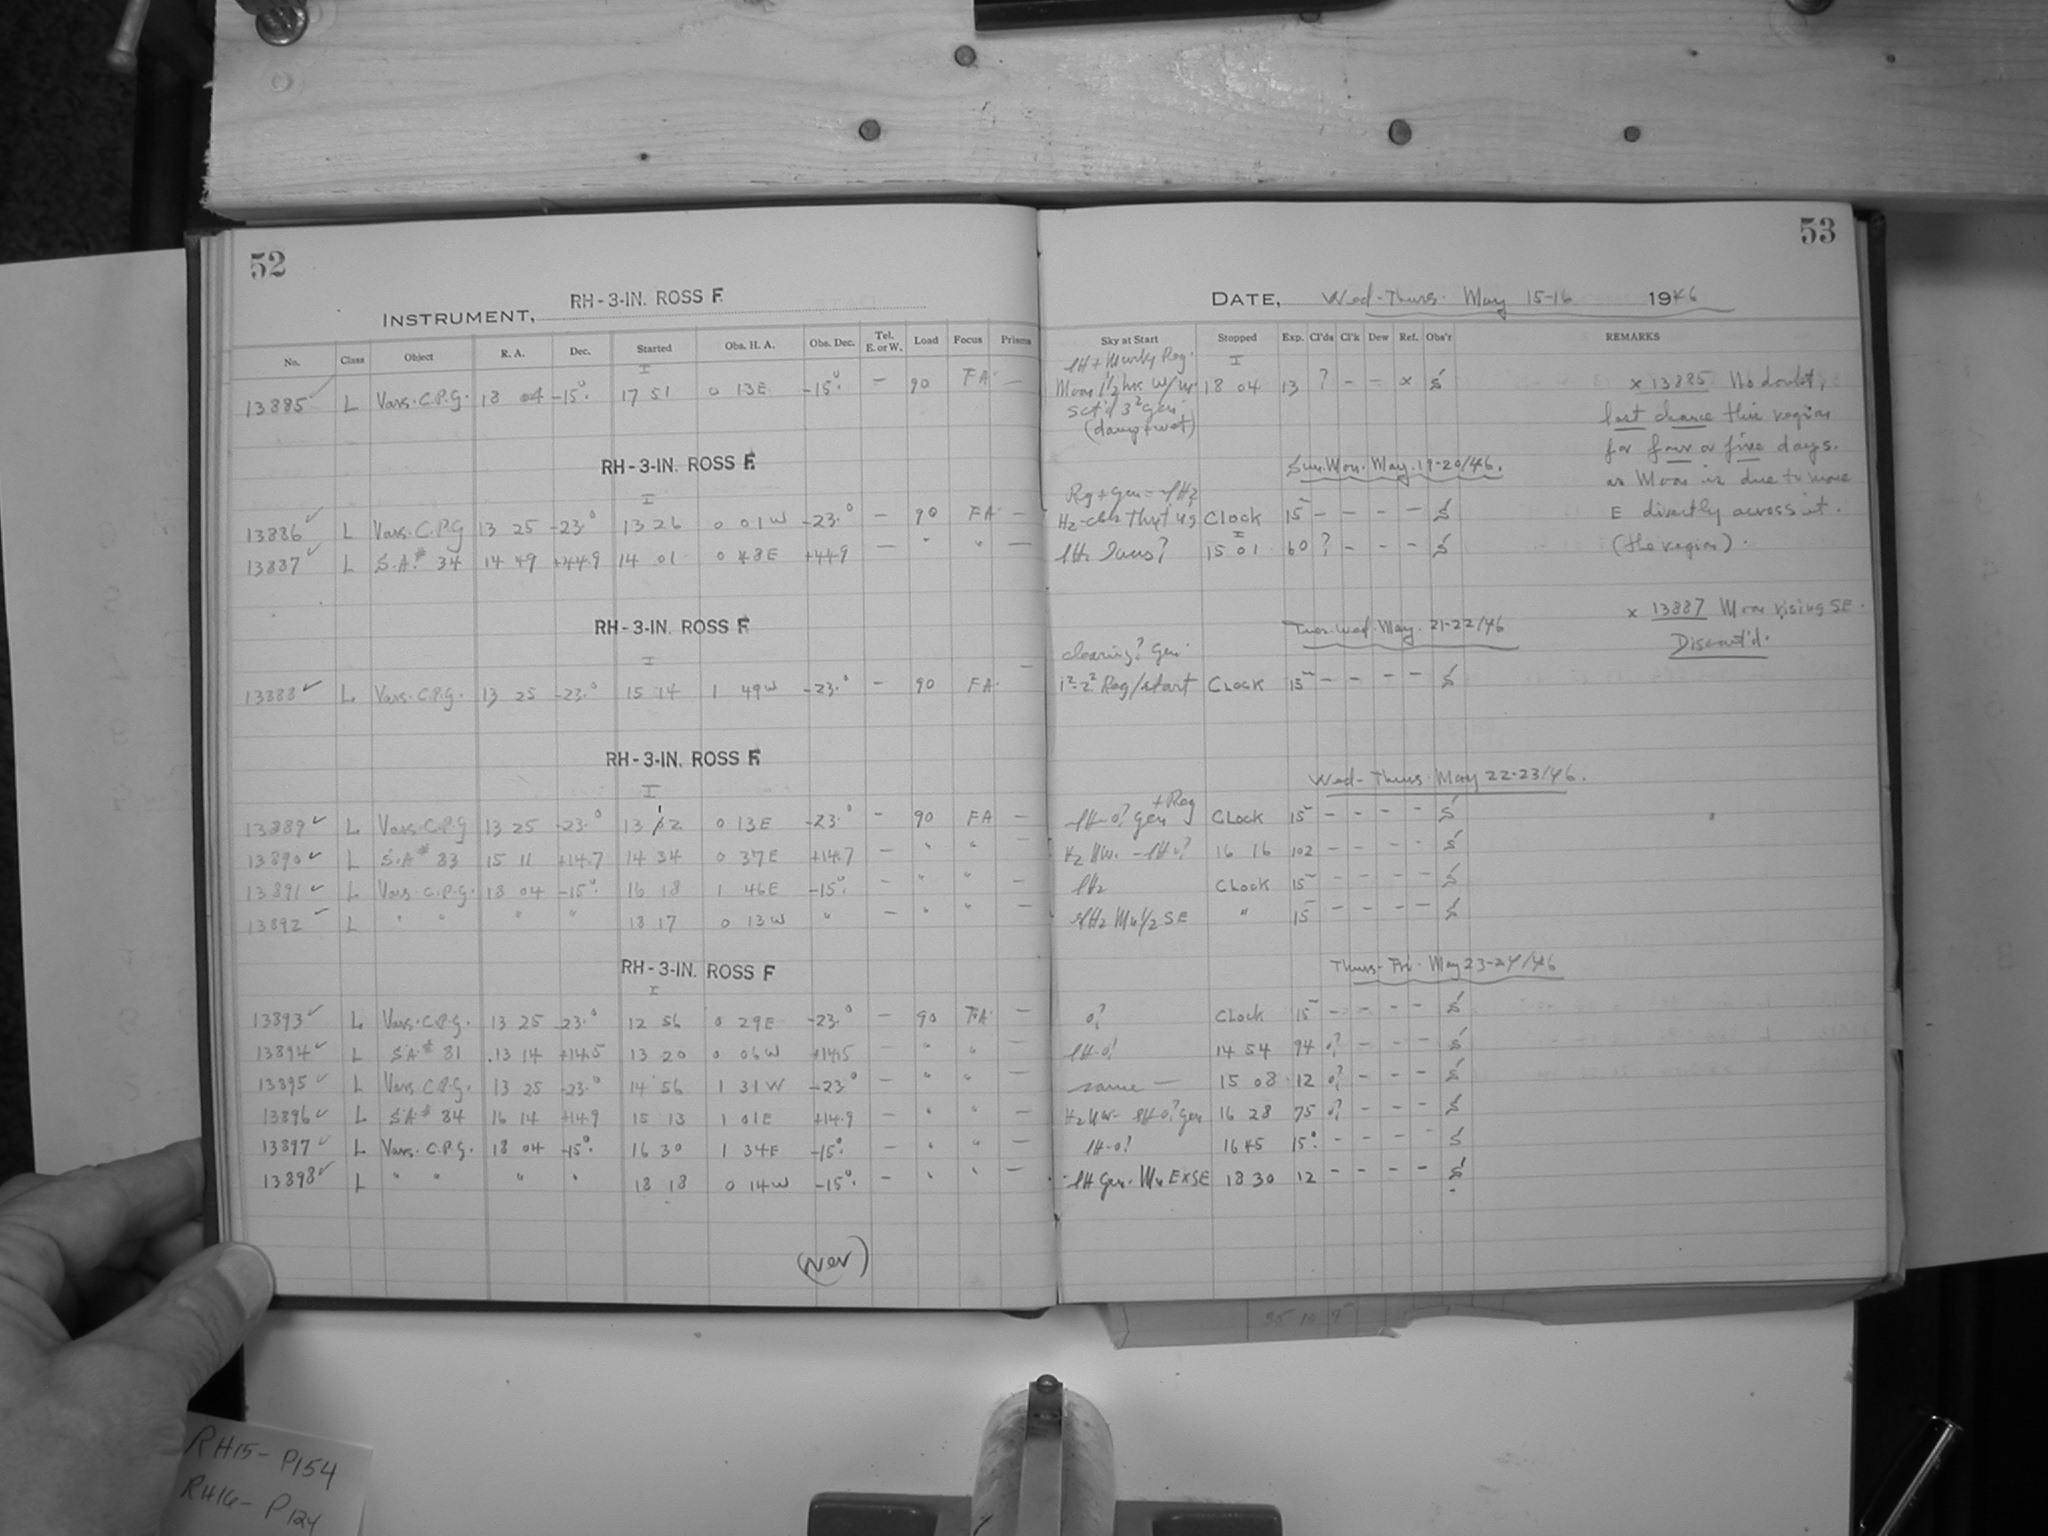 52
INSTRUMENT, RH-3-IN. ROSS F.
No. Class Object R. A. Dec. Started Obs. H. A. Obs. Dec. Tel. E. or W. Load Focus Prisms
I
13885 ✓ L Vars. C.P.G. 18 04 -15° 17 51 0 13E -15° - 90 FA. -
RH-3-IN. ROSS F.
I
13886 ✓ L Vars. C.P.G 13 25 -23.° 13 26 0 01W -23.° - 90 FA. -
13887 ✓ L S.A.# 34 14 49 +44.9 14 01 0 48E +44.9 - " " -
RH-3-IN. ROSS F.
I
13888 ✓ L Vars. C.P.G. 13 25 -23.° 15 14 1 49W -23.° - 90 FA. -
RH-3-IN. ROSS F.
I
13889 ✓ L Vars. C.P.G 13 25 -23.° 13 12 0 13E -23.° - 90 FA -
13890 ✓ L S.A.# 83 15 11 +14.7 14 34 0 37E +14.7 - " " -
13891 ✓ L Vars. C.P.G. 18 04 -15° 16 18 1 46E -15° - " " -
13892 ✓ L " " " " 18 17 0 13W " - " " -
RH-3-IN. ROSS F
I
13893 ✓ L Vars. C.P.G. 13 25 -23.° 12 56 0 29E -23.° - 90 FA. -
13894 ✓ L S.A.# 81 13 14 +14.5 13 20 0 06W +14.5 - " " -
13895 ✓ L Vars. C.P.G. 13 25 -23.° 14 56 1 31W -23° - " " -
13896 ✓ L S.A.# 84 16 14 +14.9 15 13 1 01E +14.9 - " " -
13897 ✓ L Vars. C.P.G. 18 04 -15° 16 30 1 34E -15° - " " -
13898 ✓ L " " " " 18 18 0 14W -15° - " " -
53
DATE, Wed-Thurs. May 15-16 1946
Sky at Start Stopped Exp. Cl'ds Cl'k Dew Ref. Obs'r REMARKS
Murky Reg. I
Moon 1½ hrs 18 04 13 ? - - x S
3² gen.
(damp + wet)
x 13885 No doubt,
last chance this region
for four or five days.
as Moon is due to move
E directly across it.
(the region).
Sun. Mon. May. 19-20/46.
CLOCK 15 - - - - S
I
15 01 60 ? - - - S
x 13887 Moon rising SE.
Discont'd.
Tues. Wed. May. 21-22/46
clearing? Gen.
1²-2² Reg/start CLOCK 15 - - - - S
Wed-Thurs. May 22-23/46.
+ Reg
gen CLOCK 15 - - - - S
16 16 102 - - - - S
CLOCK 15 - - - - S
SE " 15 - - - - S
Thurs-Fri. May 23-24/46
0? CLOCK 15 - - - - S
14 54 94 0? - - - S
same — 15 08 12 0? - - - S
gen 16 28 75 0? - - - S
16 45 15 - - - - S
Gen. SE 18 30 12 - - - - S
RH15- P154
RH16- P124